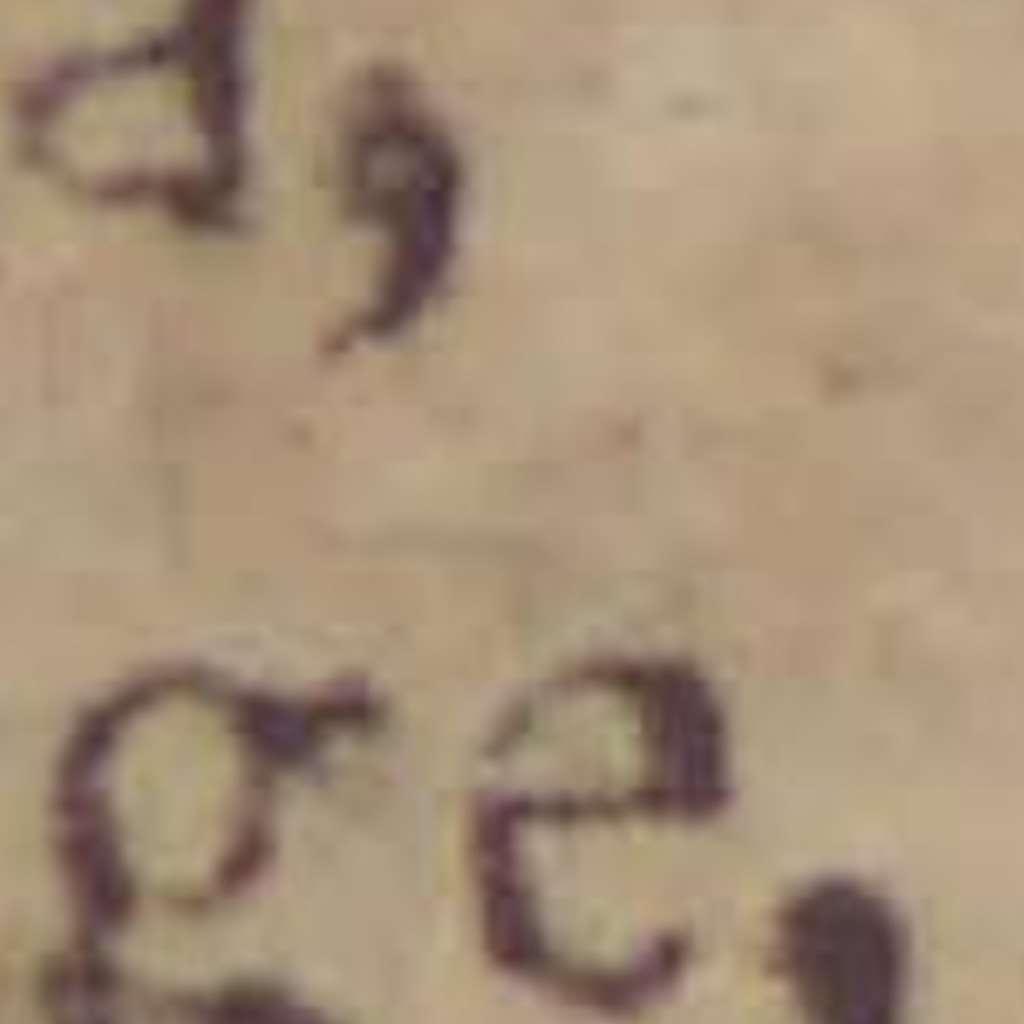 d,
ge,